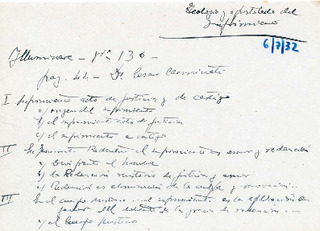 Teología y apostolado del
Sufrimiento
6/7/32
Illuminare - Nº 136 -
pag. 44 - De Cesar
I Sufrimiento acto de justicia y de castigo
a) origen del sufrimiento
b) el sufrimiento acto de justicia
c) el sufrimiento castigo
II Redentor el sufrimiento es amor y redención
a) frente al hombre
b) la Redención misterio de justicia y amor
c) Redención es eliminación de la culpa y
III En el cuerpo el sufrimiento es la aplicación
de la gracia de redención
a) el Cuerpo místico